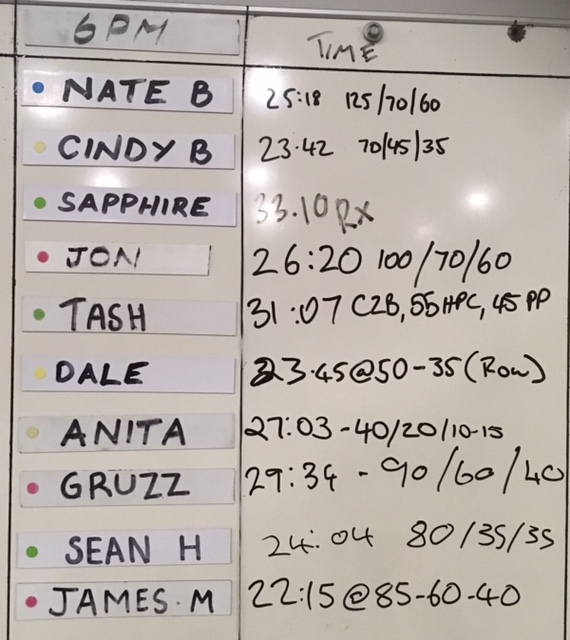 6PM TIME
NATE B 25:18 125/70/60
CINDY B 23.42 70/45/35
SAPPHIRE 33.10 RX
JON 26:20 100/70/60
TASH 31:07 C2B, 55HPC, 45 PP
DALE 23.45@50-35 (ROW)
ANITA 27:03-40/20/10-15
GRUZZ 29:34 - 90/60/40
SEAN H 24:04 80/35/35
JAMES.M 22:15@85-60-40